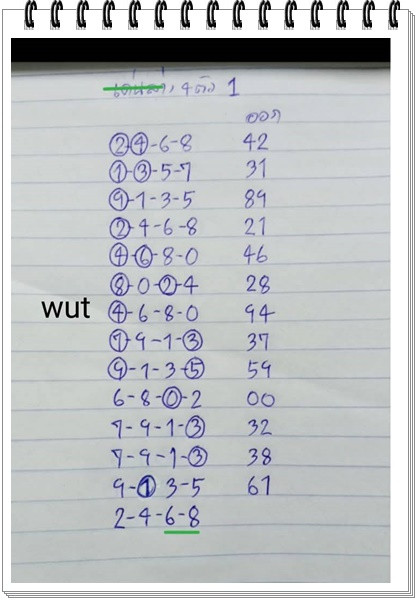 เด่นล่าง, 4ตัว 1
ออก
2-4-6-8 42
1-3-5-7 31
9-1-3-5 89
2-4-6-8 21
4-6-8-0 46
8-0-2-4 28
wut
4-6-8-0 94
7-9-1-3 37
9-1-3-5 59
6-8-0-2 00
7-9-1-3 32
7-9-1-3 38
9-1 3-5 61
2-4-6-8